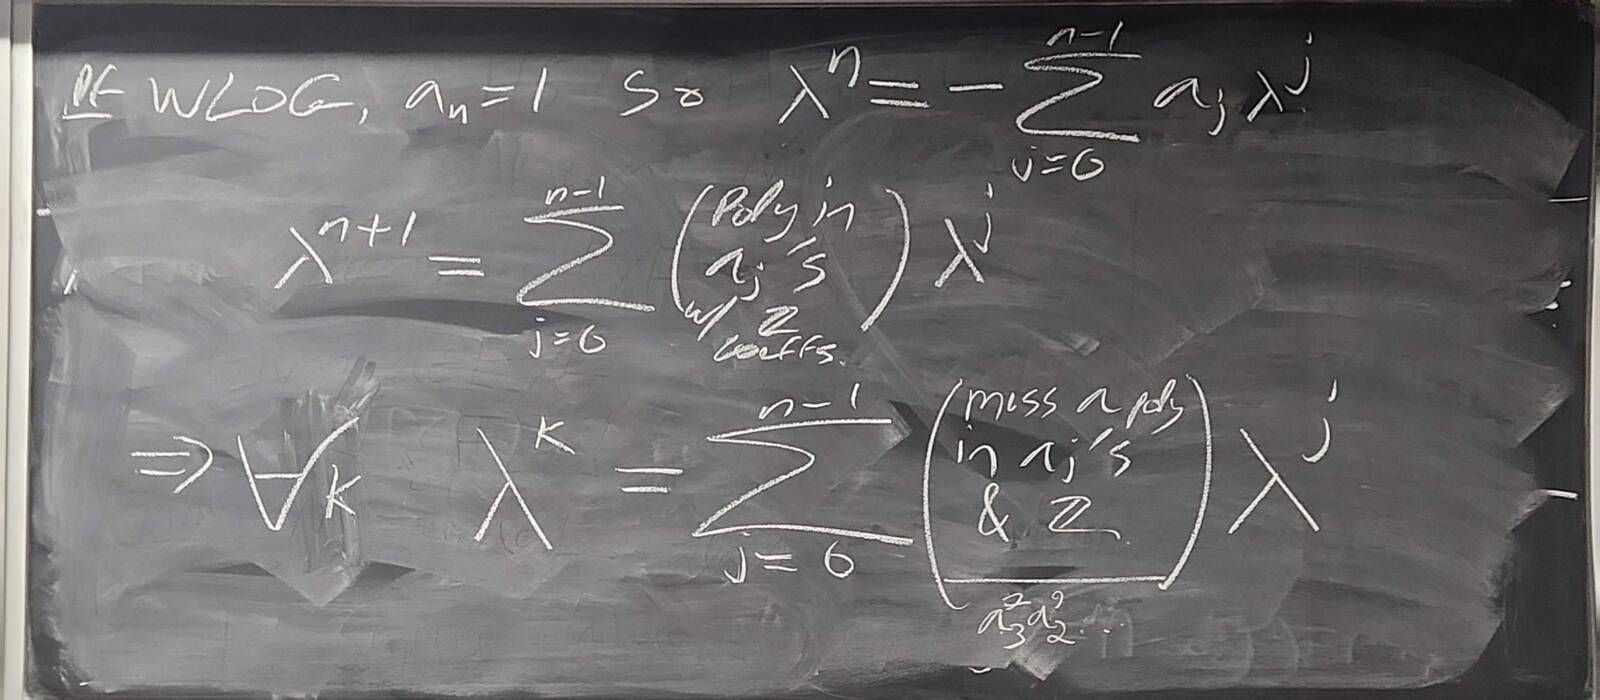 Pf WLOG, a_n = 1 so λ^n = - ∑_{j=0}^{n-1} a_j λ^j
λ^{n+1} = ∑_{j=0}^{n-1} (Poly in a_j's w/ Z coeffs.) λ^j
⇒ ∀k λ^k = ∑_{j=0}^{n-1} (mess a poly in a_j's & Z) λ^j
a_3^2 a_2^9 ...